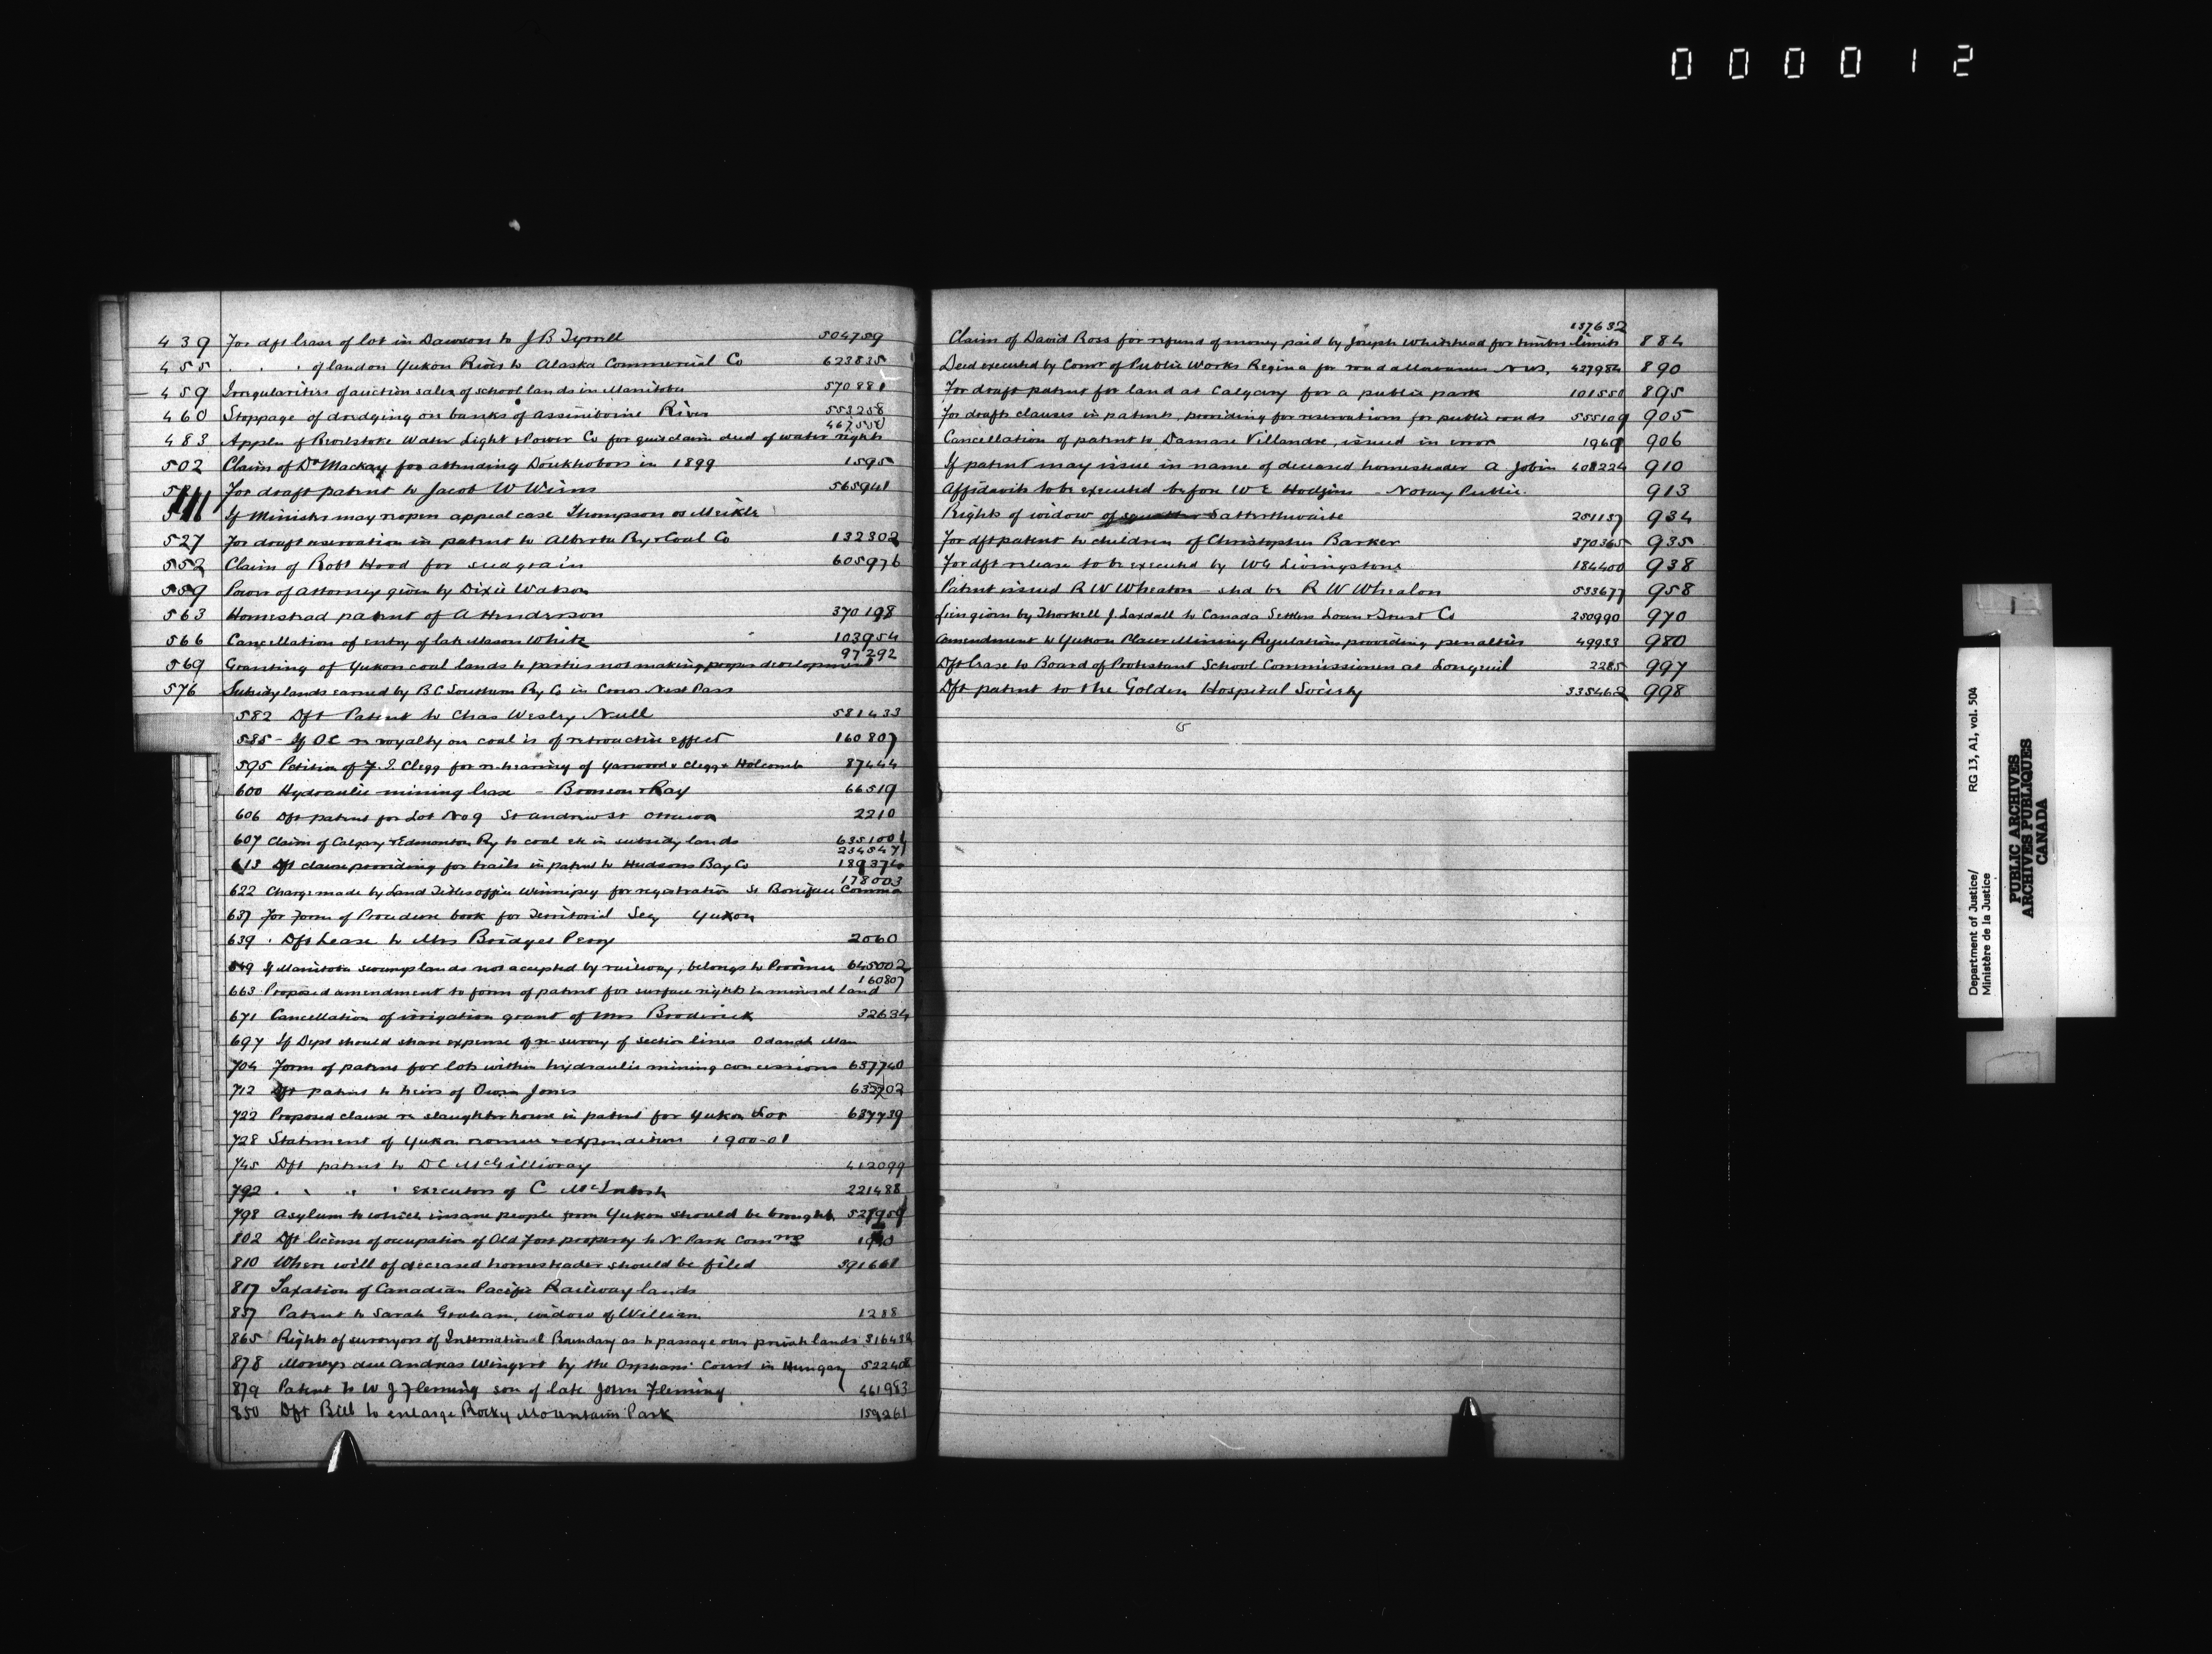 000012
439 For dft lease of lot in Dawson to J B Tyrrell 504759
455 . . . of land on Yukon River to Alaska Commercial Co 623835
459 Irregularities of auction sales of school lands in Manitoba 570881
460 Stoppage of dredging on banks of Assiniboine River 553258
467550
483 Appln of Revelstoke Water Light & Power Co for quit claim deed of water rights
502 Claim of Dr Mackay for attending Doukhobors in 1899 1595
For draft patent to Jacob W Wiens 565941
If Minister may reopen appeal case Thompson vs Meikle
527 For draft reservation in patent to Alberta Ry & Coal Co 132802
552 Claim of Robt Hood for seed grain 605976
559 Power of attorney given by Dixie Watson
563 Homestead patent of A Henderson 370198
566 Cancellation of entry of late Mason White 103954
97292
569 Granting of Yukon coal lands to parties not making proper development
576 Subsidy lands earned by B C Southern Ry Co in Crows Nest Pass
582 Dft Patent to Chas Wesley Null 581433
585 - If O C re royalty on coal is of retroactive effect 160807
595 Petition of F. J. Clegg for re-hearing of Yarwood v Clegg & Holcomb 87444
600 Hydraulic mining lease - Bronson & Ray 66519
606 Dft patent for Lot No 9 St Andrew St Ottawa 2210
607 Claim of Calgary & Edmonton Ry to coal etc in subsidy lands 6351001
234547
613 Dft clause providing for trails in patent to Hudsons Bay Co 189374
178003
622 Charge made by Land Titles office Winnipeg for registration St Boniface Common
637 For Form of Procedure book for Territorial Secy Yukon
639 . Dft Lease to Mrs Bridget Perry 2060
649 If Manitoba swamp lands not accepted by railway, belongs to Province 645002
160807
663 Proposed amendment to form of patent for surface rights in mineral land
671 Cancellation of irrigation grant of Mrs Broderick 32634
697 If Dept should share expense of re-survey of section lines Odanah Man
704 Form of patent for lots within hydraulic mining concessions 637740
712 Dft patent to heirs of Owen Jones 632702
722 Proposed clause re slaughter house in patent for Yukon Lot 637739
728 Statement of Yukon revenue & expenditure 1900-01
745 Dft patent to D C McGillivray 412099
792 . . " ' executors of C McIntosh 221488
798 Asylum to which insane people from Yukon should be brought 527959
802 Dft license of occupation of Old Fort property to N. Park Comrs
810 Where will of deceased homesteader should be filed 391661
817 Taxation of Canadian Pacific Railway lands
837 Patent to Sarah Graham, widow of William 1288
865 Rights of surveyors of International Boundary as to passage over private lands 316432
878 Moneys due Andreas Wingert by the Orphans' Court in Hungary 522408
879 Patent to W J Fleming son of late John Fleming 461983
850 Dft Bill to enlarge Rocky Mountain Park 159261
137632
Claim of David Ross for refund of money paid by Joseph Whitehead for timber limits 884
Deed executed by Comr of Public Works Regina for road allowances N W S, 427984 890
For draft patent for land at Calgary for a public park 101550 895
For draft clauses in patents providing for reservations for public roads 555109 905
Cancellation of patent to Damase Villandre, issued in error 1969 906
If patent may issue in name of deceased homesteader A Jobin 408224 910
Affidavits to be executed before W E Hodgins - Notary Public. 913
Rights of widow of squatter Satterthwaite 251137 934
For dft patent to children of Christopher Barker 370365 935
For dft release to be executed by W G Livingstone 184400 938
Patent issued R W Wheaton - shd be R W Whealon 533677 958
Lien given by Thorkell J. Laxdall to Canada Settlers Loan & Trust Co 250990 970
Amendment to Yukon Placer Mining Regulations providing penalties 49953 980
Dft lease to Board of Protestant School Commissioners at Longueuil 2285 997
Dft patent to the Golden Hospital Society 335462 998
Department of Justice/ RG 13, A1, vol. 504
Ministère de la Justice
PUBLIC ARCHIVES
ARCHIVES PUBLIQUES
CANADA